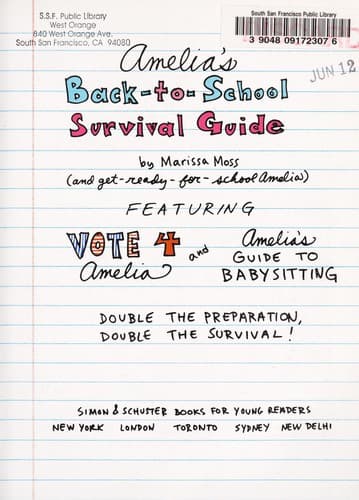 S.S.F. Public Library
West Orange
840 West Orange Ave.
South San Francisco, CA 94080
South San Francisco Public Library
3 9048 09172307 6
JUN 12
Amelia's
Back-to-School
Survival Guide
by Marissa Moss
(and get-ready-for-school Amelia)
FEATURING
VOTE 4
Amelia
and
Amelia's
GUIDE TO
BABYSITTING
DOUBLE THE PREPARATION,
DOUBLE THE SURVIVAL!
SIMON & SCHUSTER BOOKS FOR YOUNG READERS
NEW YORK LONDON TORONTO SYDNEY NEW DELHI